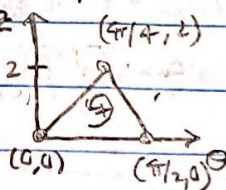 2
(π/4, 2)
2
(0,0)
(π/2, 0)
θ